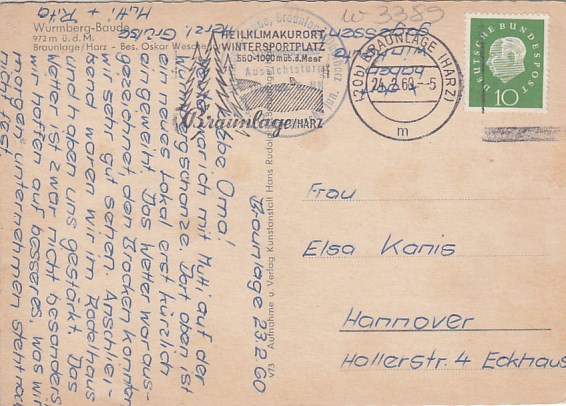 Wurmberg-Baude
972 m ü. d. M.
Braunlage/Harz - Bes. Oskar
W 3389
HEILKLIMAKURORT
WINTERSPORTPLATZ
560-1000 m üb. d. Meer
Braunlage/HARZ
(20b) BRAUNLAGE (HARZ)
m
DEUTSCHE BUNDESPOST
10
Braunlage 23.2.60
Liebe Oma!
Gestern war ich mit Mutti auf der
Wurmbergschanze. Dort oben ist
ein neues Lokal erst kürzlich
eingeweiht. Das Wetter war aus-
gezeichnet, den Brocken konnten
wir sehr gut sehen. Anschlie-
send waren wir im Rodelhaus
und haben uns gestärkt. Das
Wetter ist zwar nicht besonders
wir hoffen auf besseres, was wir
morgen unternehmen steht noch
nicht fest.
Herzl. Grüße
Mutti + Rita
haben
wir
gegessen
V73 Aufnahme u. Verlag Kunstanstalt Hans Rudolphi
Frau
Elsa Kanis
Hannover
Hallerstr. 4 Eckhaus